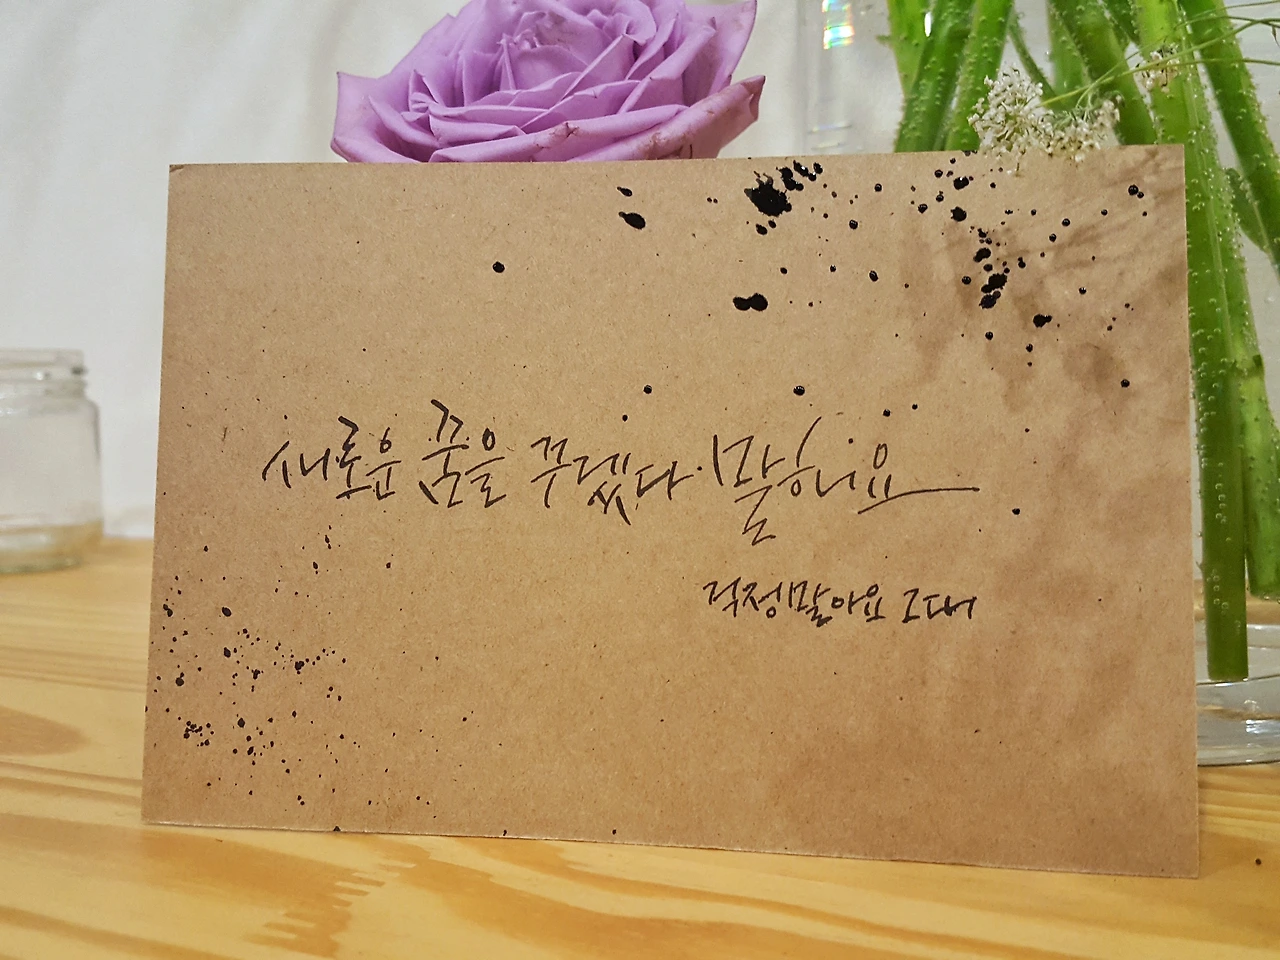 새로운 꿈을 꾸겠다 말해요
걱정말아요 그대